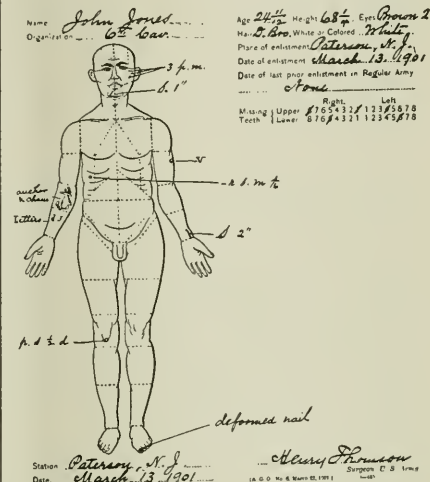 Name John Jones
Organization 6th Cav.
Age 24 11/12 Height 68 1/4 Eyes Brown 2
Hair D. Bro. White or Colored White
Place of enlistment Paterson, N. J.
Date of enlistment March 13, 1901
Date of last prior enlistment in Regular Army
None
Right. Left
Missing Upper 8 7 6 5 4 3 2 1 1 2 3 4 5 6 7 8
Teeth Lower 8 7 6 5 4 3 2 1 1 2 3 4 5 6 7 8
3 p. m.
S. 1"
V
r s. m
anchor
& chain
Letters J S
S 2"
p. s 1/2 d
deformed nail
Station Paterson, N. J.
Date March 13 1901
Henry Thomson
Surgeon U S Army